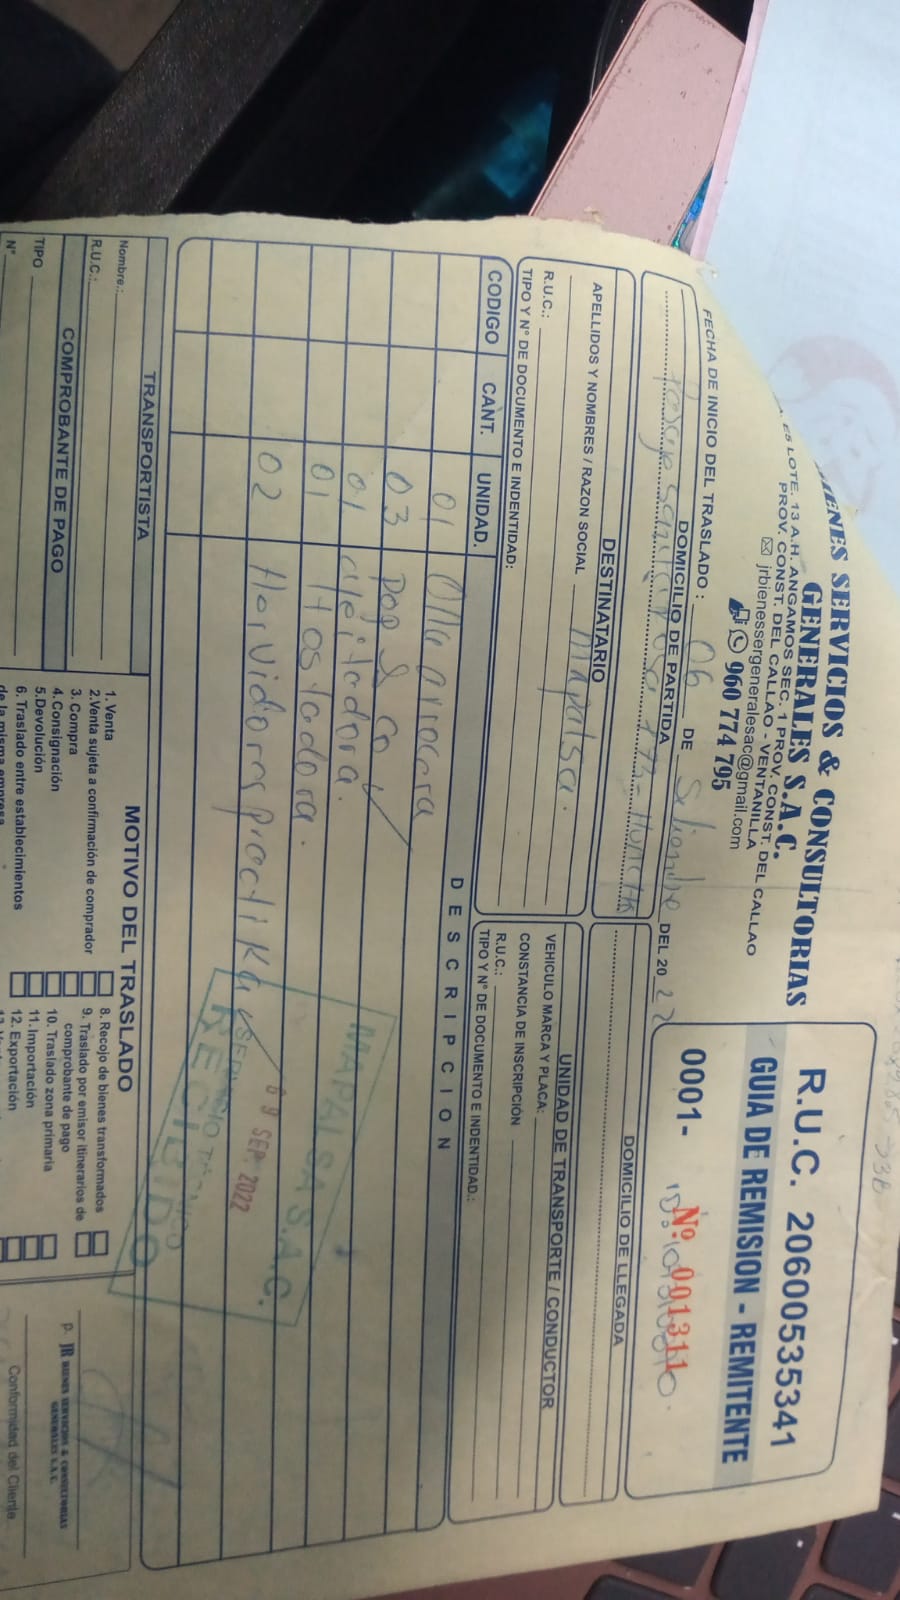 BIENES SERVICIOS & CONSULTORIAS
GENERALES S.A.C.
ES LOTE. 13 A.H. ANGAMOS SEC. 1 PROV. CONST. DEL CALLAO
PROV. CONST. DEL CALLAO - VENTANILLA
jrbienessergeneralesac@gmail.com
960 774 795
R.U.C. 20600535341
GUIA DE REMISION - REMITENTE
0001- Nº 001311
FECHA DE INICIO DEL TRASLADO : 06 DE Setiembre DEL 2022
DOMICILIO DE PARTIDA
DOMICILIO DE LLEGADA
DESTINATARIO
APELLIDOS Y NOMBRES / RAZON SOCIAL Mapalsa.
R.U.C.:
TIPO Y N° DE DOCUMENTO E INDENTIDAD:
UNIDAD DE TRANSPORTE / CONDUCTOR
VEHICULO MARCA Y PLACA:
CONSTANCIA DE INSCRIPCIÓN
R.U.C.:
TIPO Y N° DE DOCUMENTO E INDENTIDAD.:
CODIGO CANT. UNIDAD. DESCRIPCION
01 Olla arrocera
03
01
01 Tostadora.
02 Hervidores practika
MAPALSA S.A.C.
09 SEP 2022
SERVICIO TECNICO
RECIBIDO
TRANSPORTISTA
Nombre.:
R.U.C.:
COMPROBANTE DE PAGO
TIPO
N°
MOTIVO DEL TRASLADO
1. Venta
2.Venta sujeta a confirmación de comprador
3. Compra
4.Consignación
5.Devolución
6. Traslado entre establecimientos
de la misma empresa
8. Recojo de bienes transformados
9. Traslado por emisor itinerarios de
comprobante de pago
10. Traslado zona primaria
11. Importación
12. Exportación
p. JR BIENES SERVICIOS & CONSULTORIAS
GENERALES S.A.C.
Conformidad del Cliente